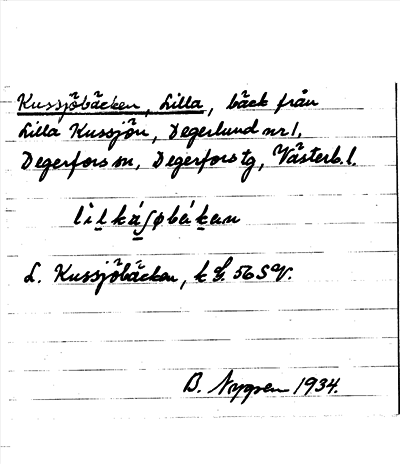 Kussjöbäcken, Lilla, bäck från
Lilla Kussjön, Degerlund nr 1,
Degerfors sn, Degerfors tg, Västerb. l.
L. Kussjöbäcken, k 56 SV.
B. Nygren 1934.